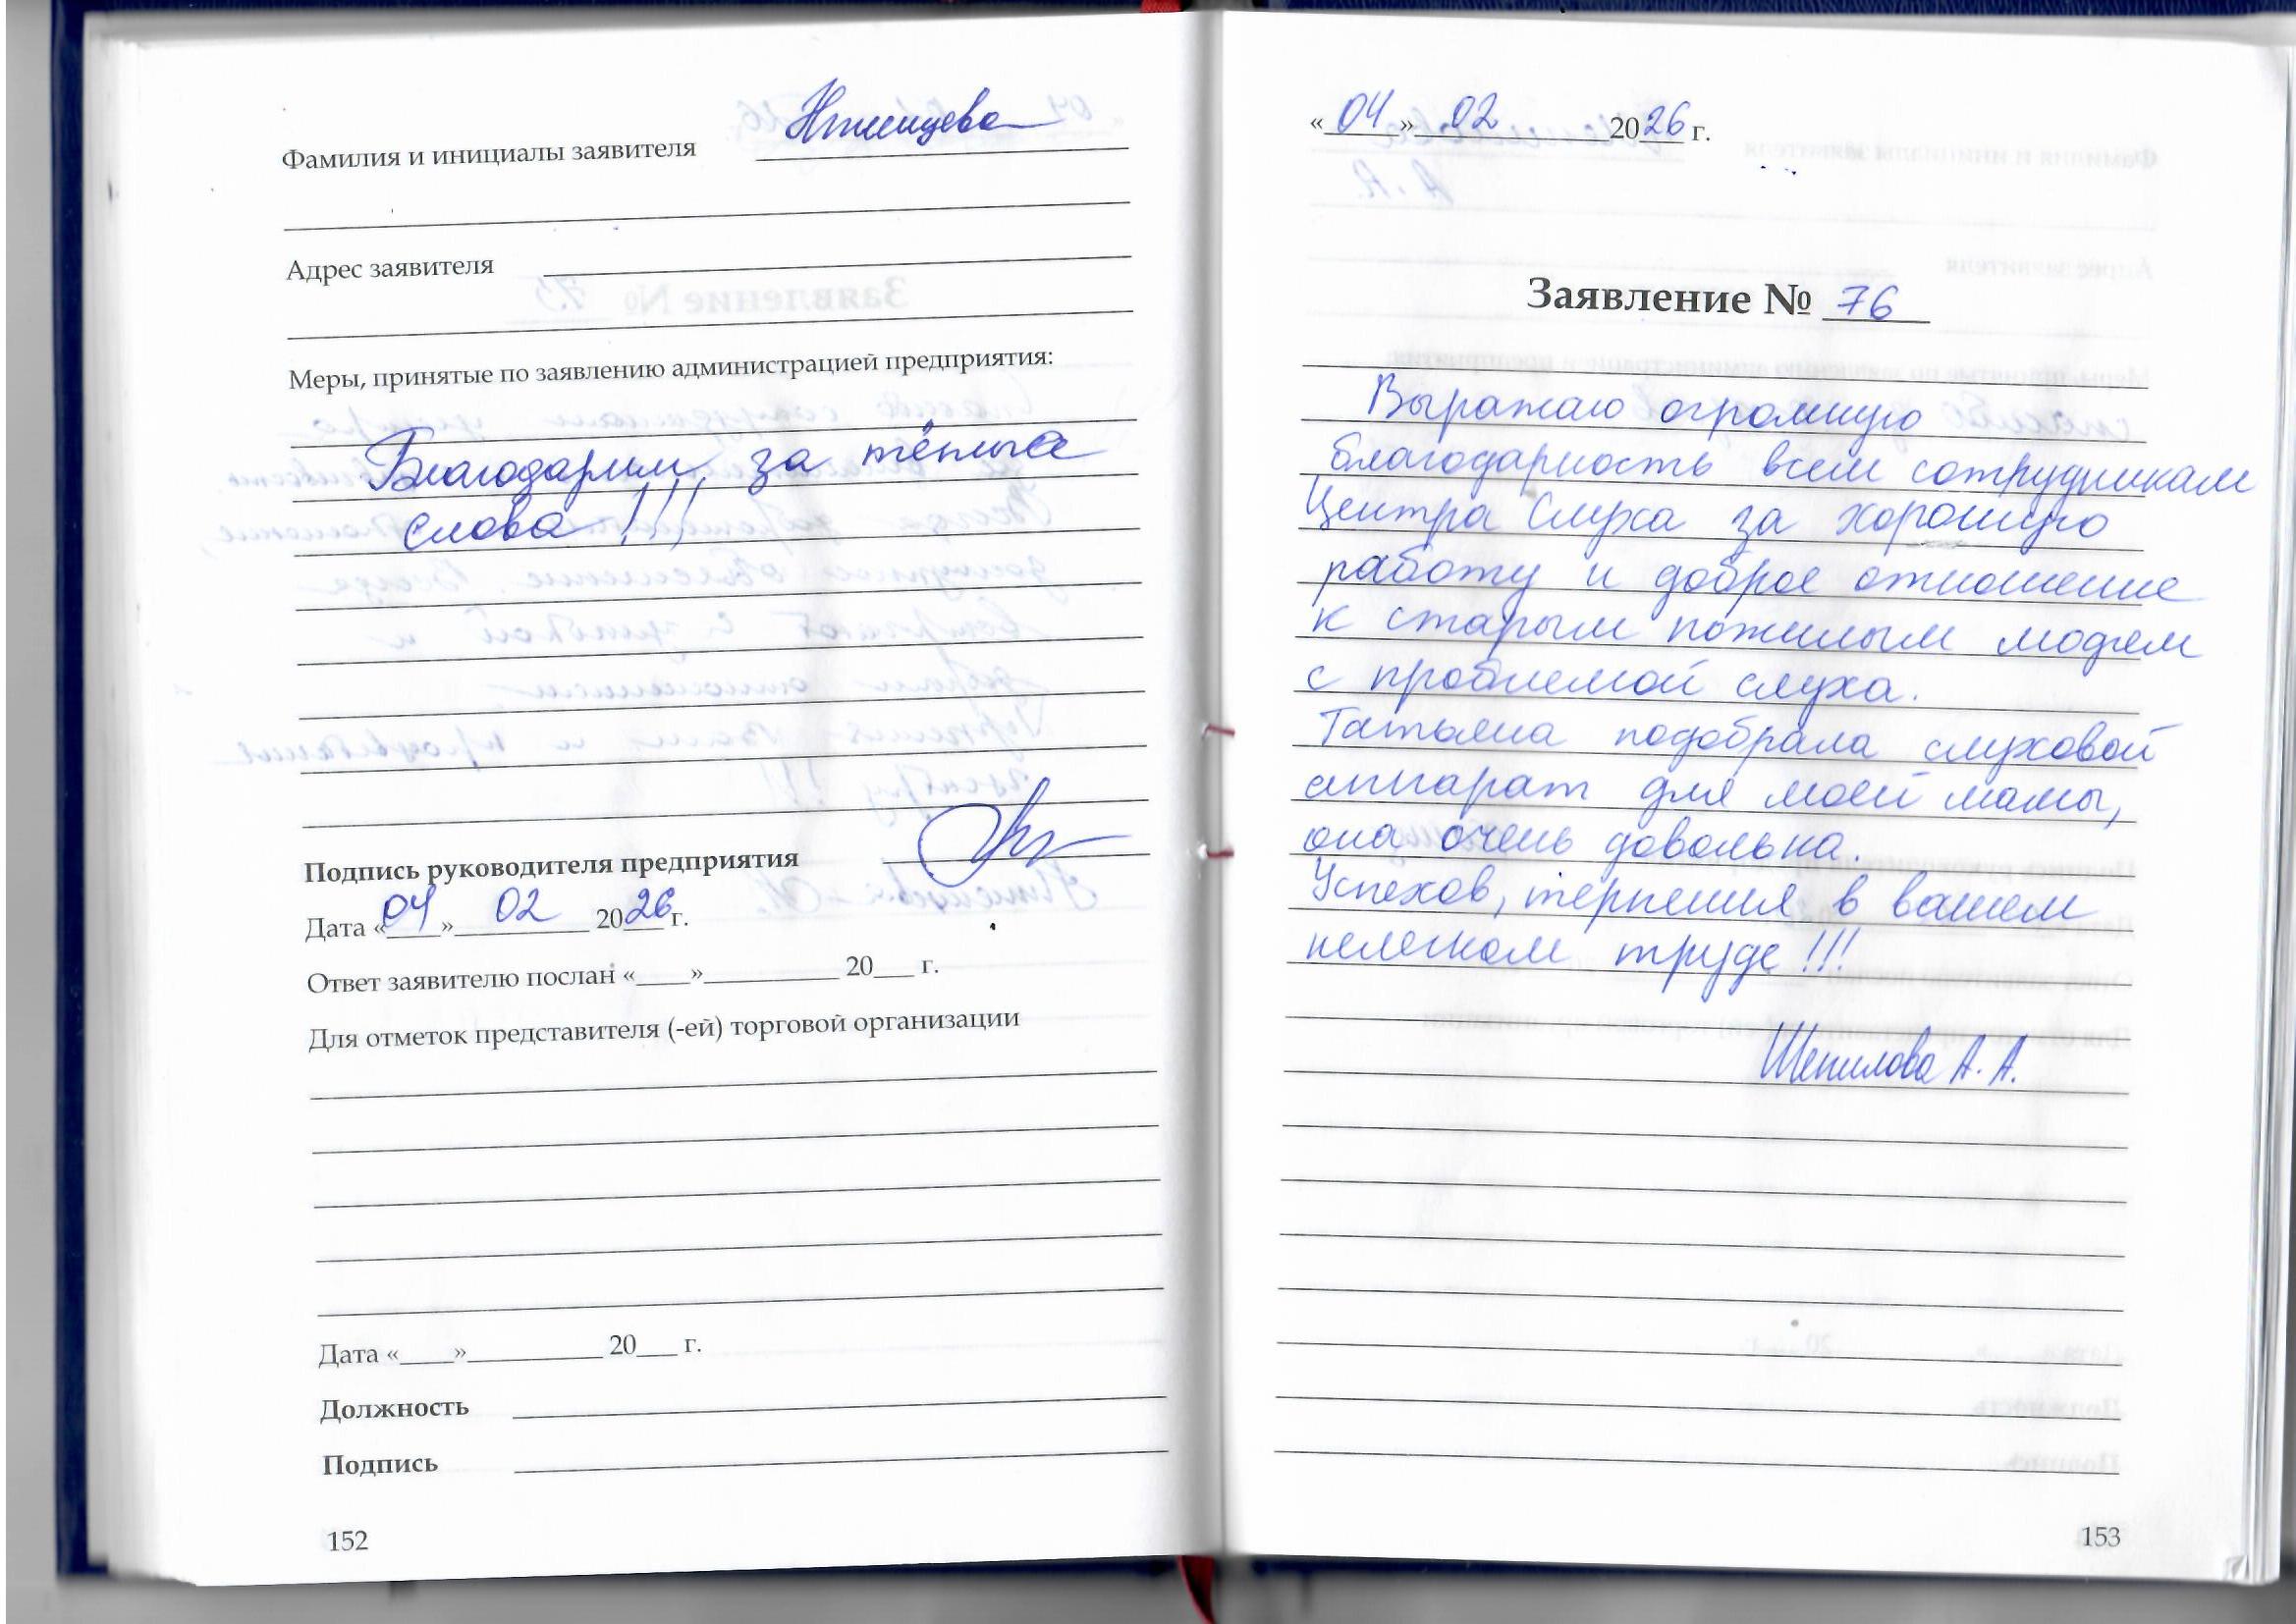 Фамилия и инициалы заявителя
Адрес заявителя
Меры, принятые по заявлению администрацией предприятия:
Благодарим за тёплые
слова!!!
Подпись руководителя предприятия
Дата «04» 02 2026 г.
Ответ заявителю послан «____»__________ 20___ г.
Для отметок представителя (-ей) торговой организации
Дата «____»__________ 20___ г.
Должность
Подпись
152
«04» 02 2026 г.
Заявление № 76
Выражаю огромную
благодарность всем сотрудникам
Центра Слуха за хорошую
работу и доброе отношение
к старым пожилым людям
с проблемой слуха.
Татьяна подобрала слуховой
аппарат для моей мамы,
она очень довольна.
Успехов, терпения в вашем
нелегком труде!!!
Шепилова А. А.
153